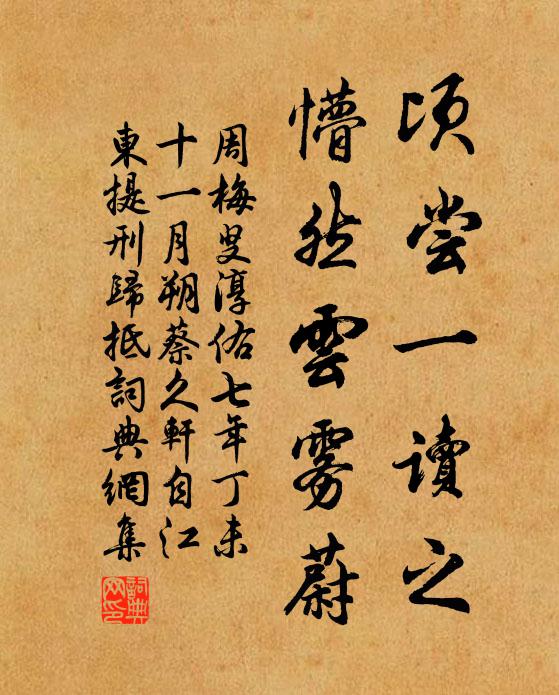 頃嘗一讀之
懵然雲霧蔚
周梅叟淳佑七年丁未
十一月朔蔡久軒自江
東提刑歸抵詞典網集
詞典
网印